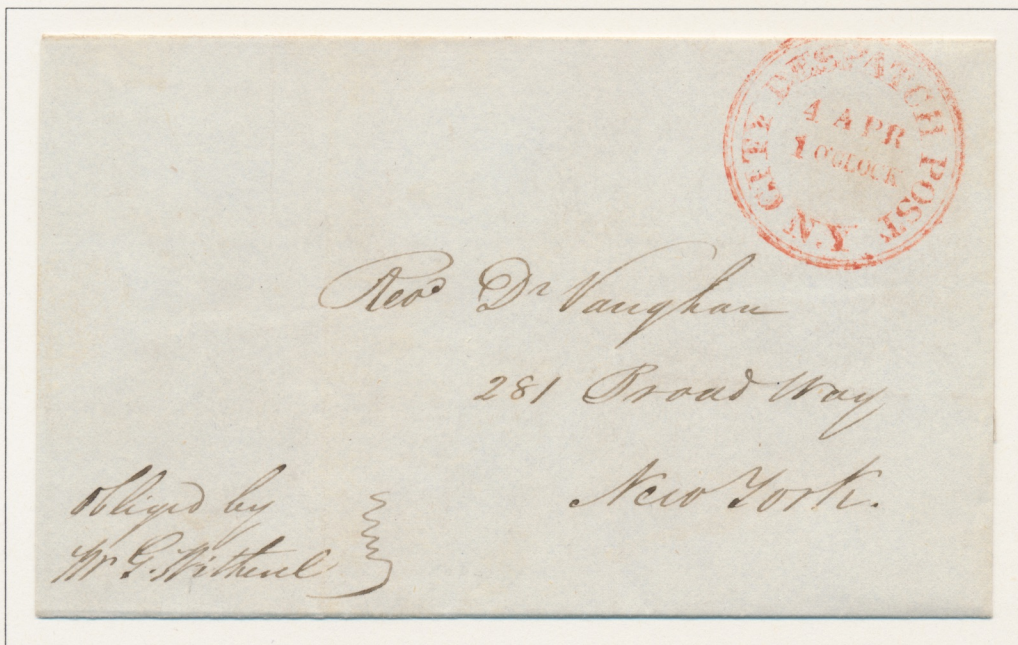 N.Y. CITY DESPATCH POST
4 APR
1 O'CLOCK
Revd Dr Vaughan
281 Broad Way
New York.
Obliged by
Mr G.